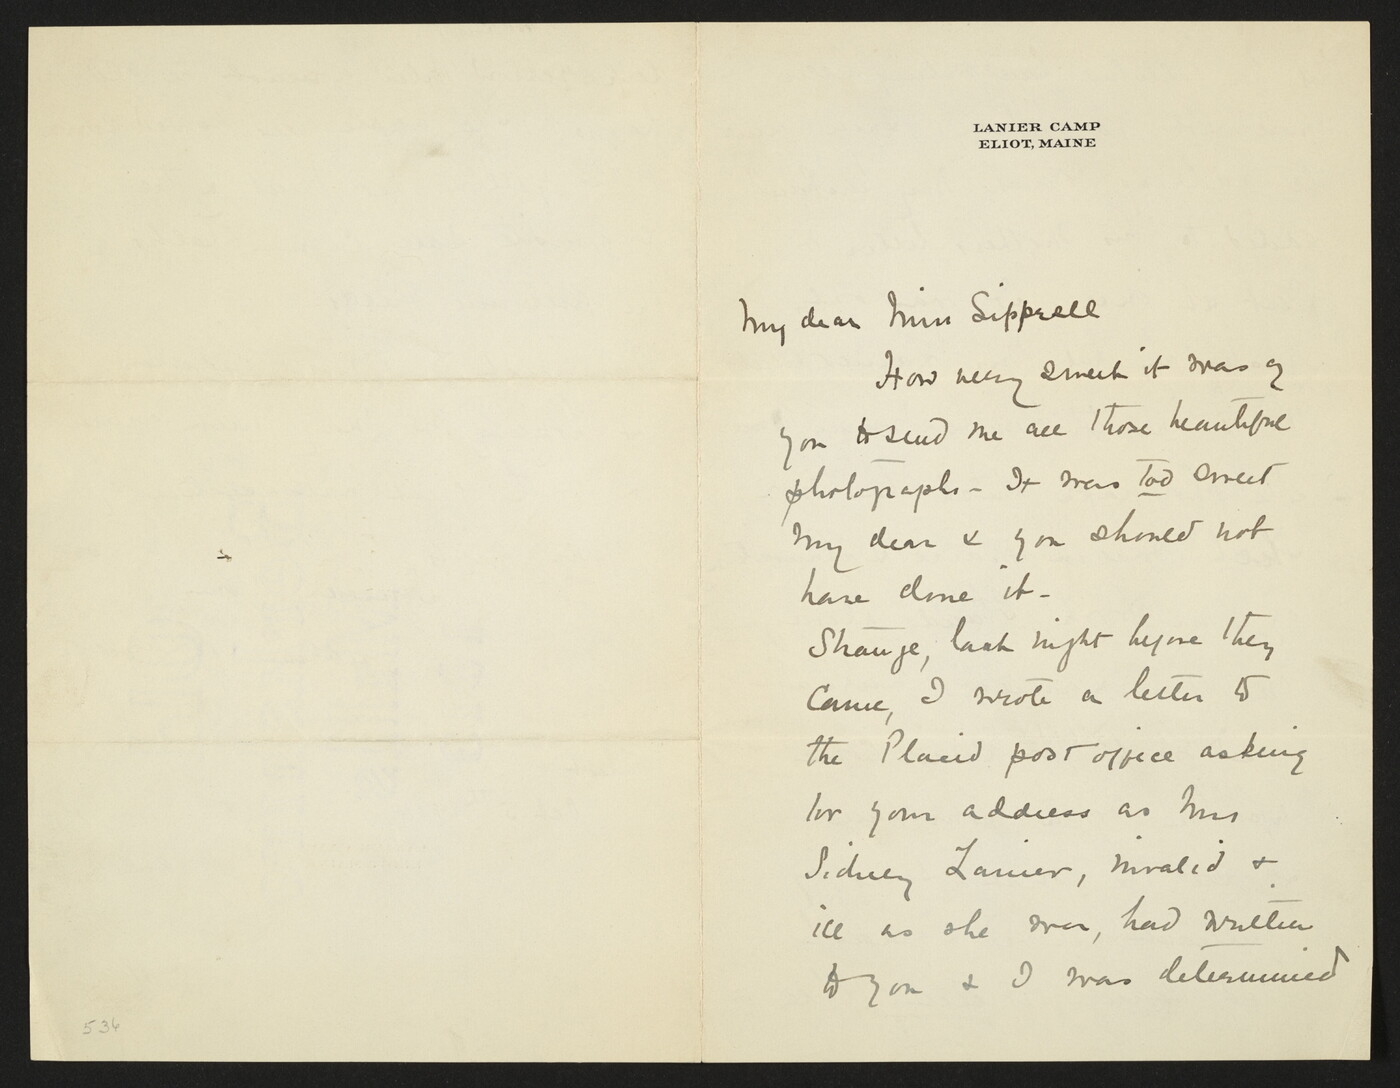 LANIER CAMP
ELIOT, MAINE
My dear Miss Sipprell
How very sweet it was of
you to send me all those beautiful
photographs - It was too sweet
my dear & you should not
have done it -
Strange, last night before they
came, I wrote a letter to
the Placid post office asking
for your address as Mrs
Sidney Lanier, invalid &
ill as she was, had written
to you & I was determined
536